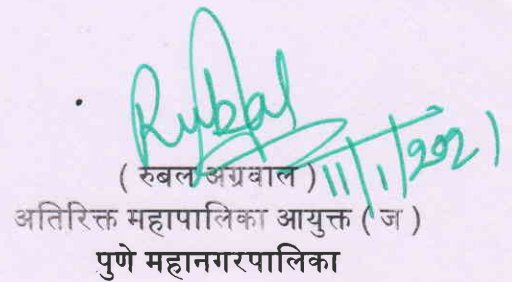 Rubal
11/1/2021
( रुबल अग्रवाल )
अतिरिक्त महापालिका आयुक्त ( ज )
पुणे महानगरपालिका